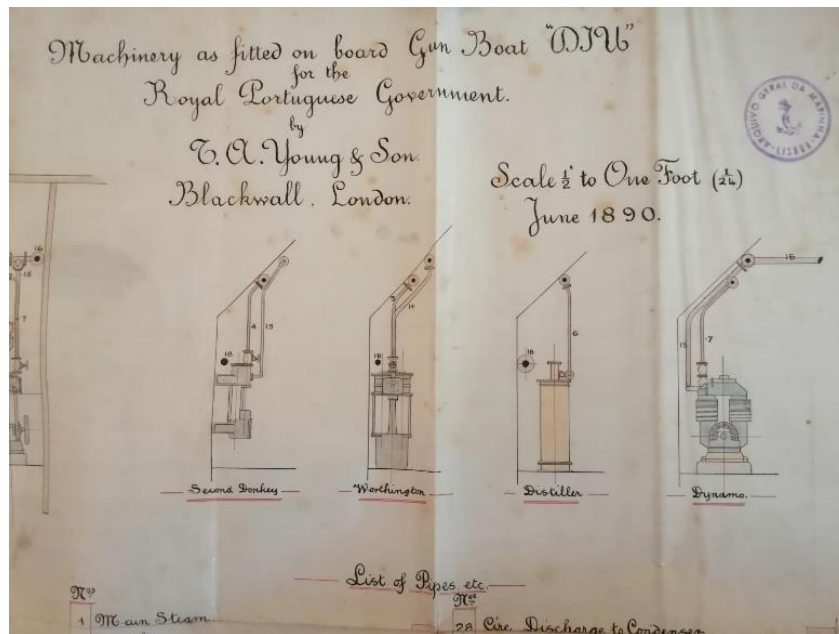 Machinery as fitted on board Gun Boat "DIU"
for the
Royal Portuguese Government.
by
T. A. Young & Son.
Blackwall. London.
Scale ½" to One Foot (1/24)
June 1890.
ARQUIVO GERAL DA MARINHA
16
15
7
4
15
18
14
18
6
18
16
15
7
Second Donkey
Worthington
Distiller
Dynamo.
List of Pipes etc.
Nos
1 Main Steam
Nos
28 Circ. Discharge to Condenser